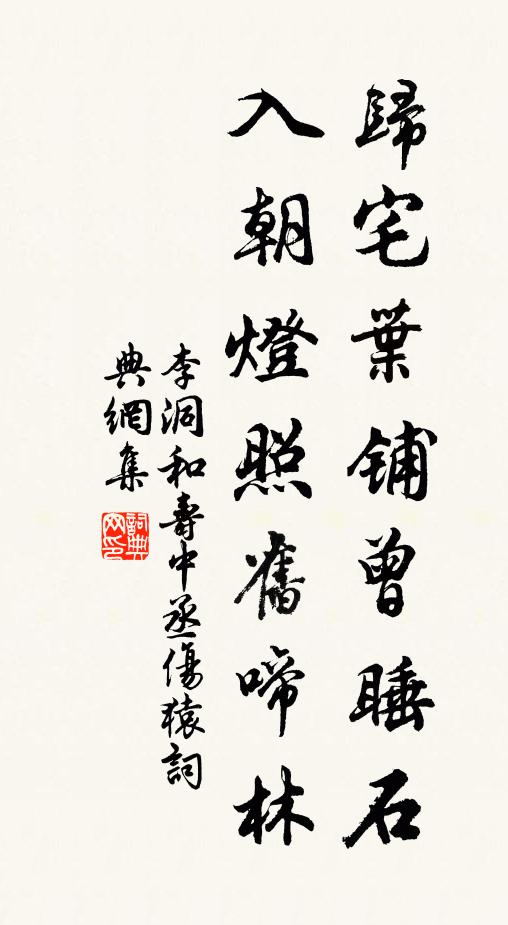 歸宅葉鋪曾睡石
入朝燈照舊啼林
李洞和壽中丞傷猿詞
典網集
詞典網印